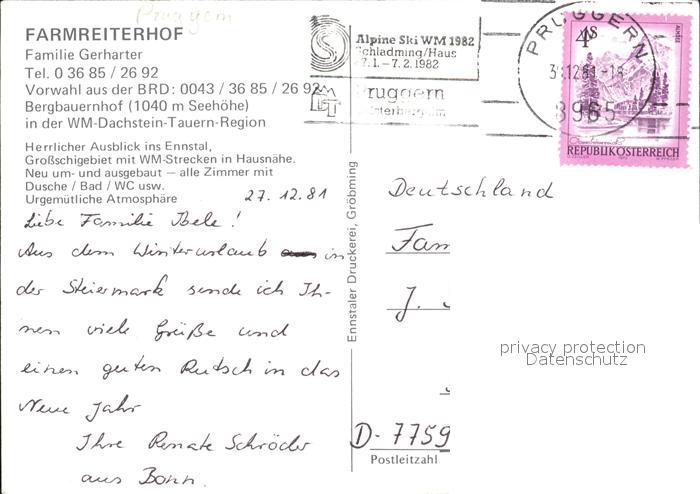 Pruggern
FARMREITERHOF
Familie Gerharter
Tel. 0 36 85 / 26 92
Vorwahl aus der BRD: 0043 / 36 85 / 26 92
Bergbauernhof (1040 m Seehöhe)
in der WM-Dachstein-Tauern-Region
Herrlicher Ausblick ins Ennstal,
Großschigebiet mit WM-Strecken in Hausnähe.
Neu um- und ausgebaut — alle Zimmer mit
Dusche / Bad / WC usw.
Urgemütliche Atmosphäre
27.12.81
Liebe Familie Ibele!
Aus dem Winterurlaub in
der Steiermark sende ich Ih-
nen viele Grüße und
einen guten Rutsch in das
Neue Jahr
Ihre Renate Schröder
aus Bonn.
Ennstaler Druckerei, Gröbming
Alpine Ski WM 1982
Schladming/Haus
27.1. – 7.2. 1982
Pruggern
PRUGGERN
8965
4S
REPUBLIK ÖSTERREICH
Deutschland
Fam
J.
D-7759
Postleitzahl
privacy protection
Datenschutz